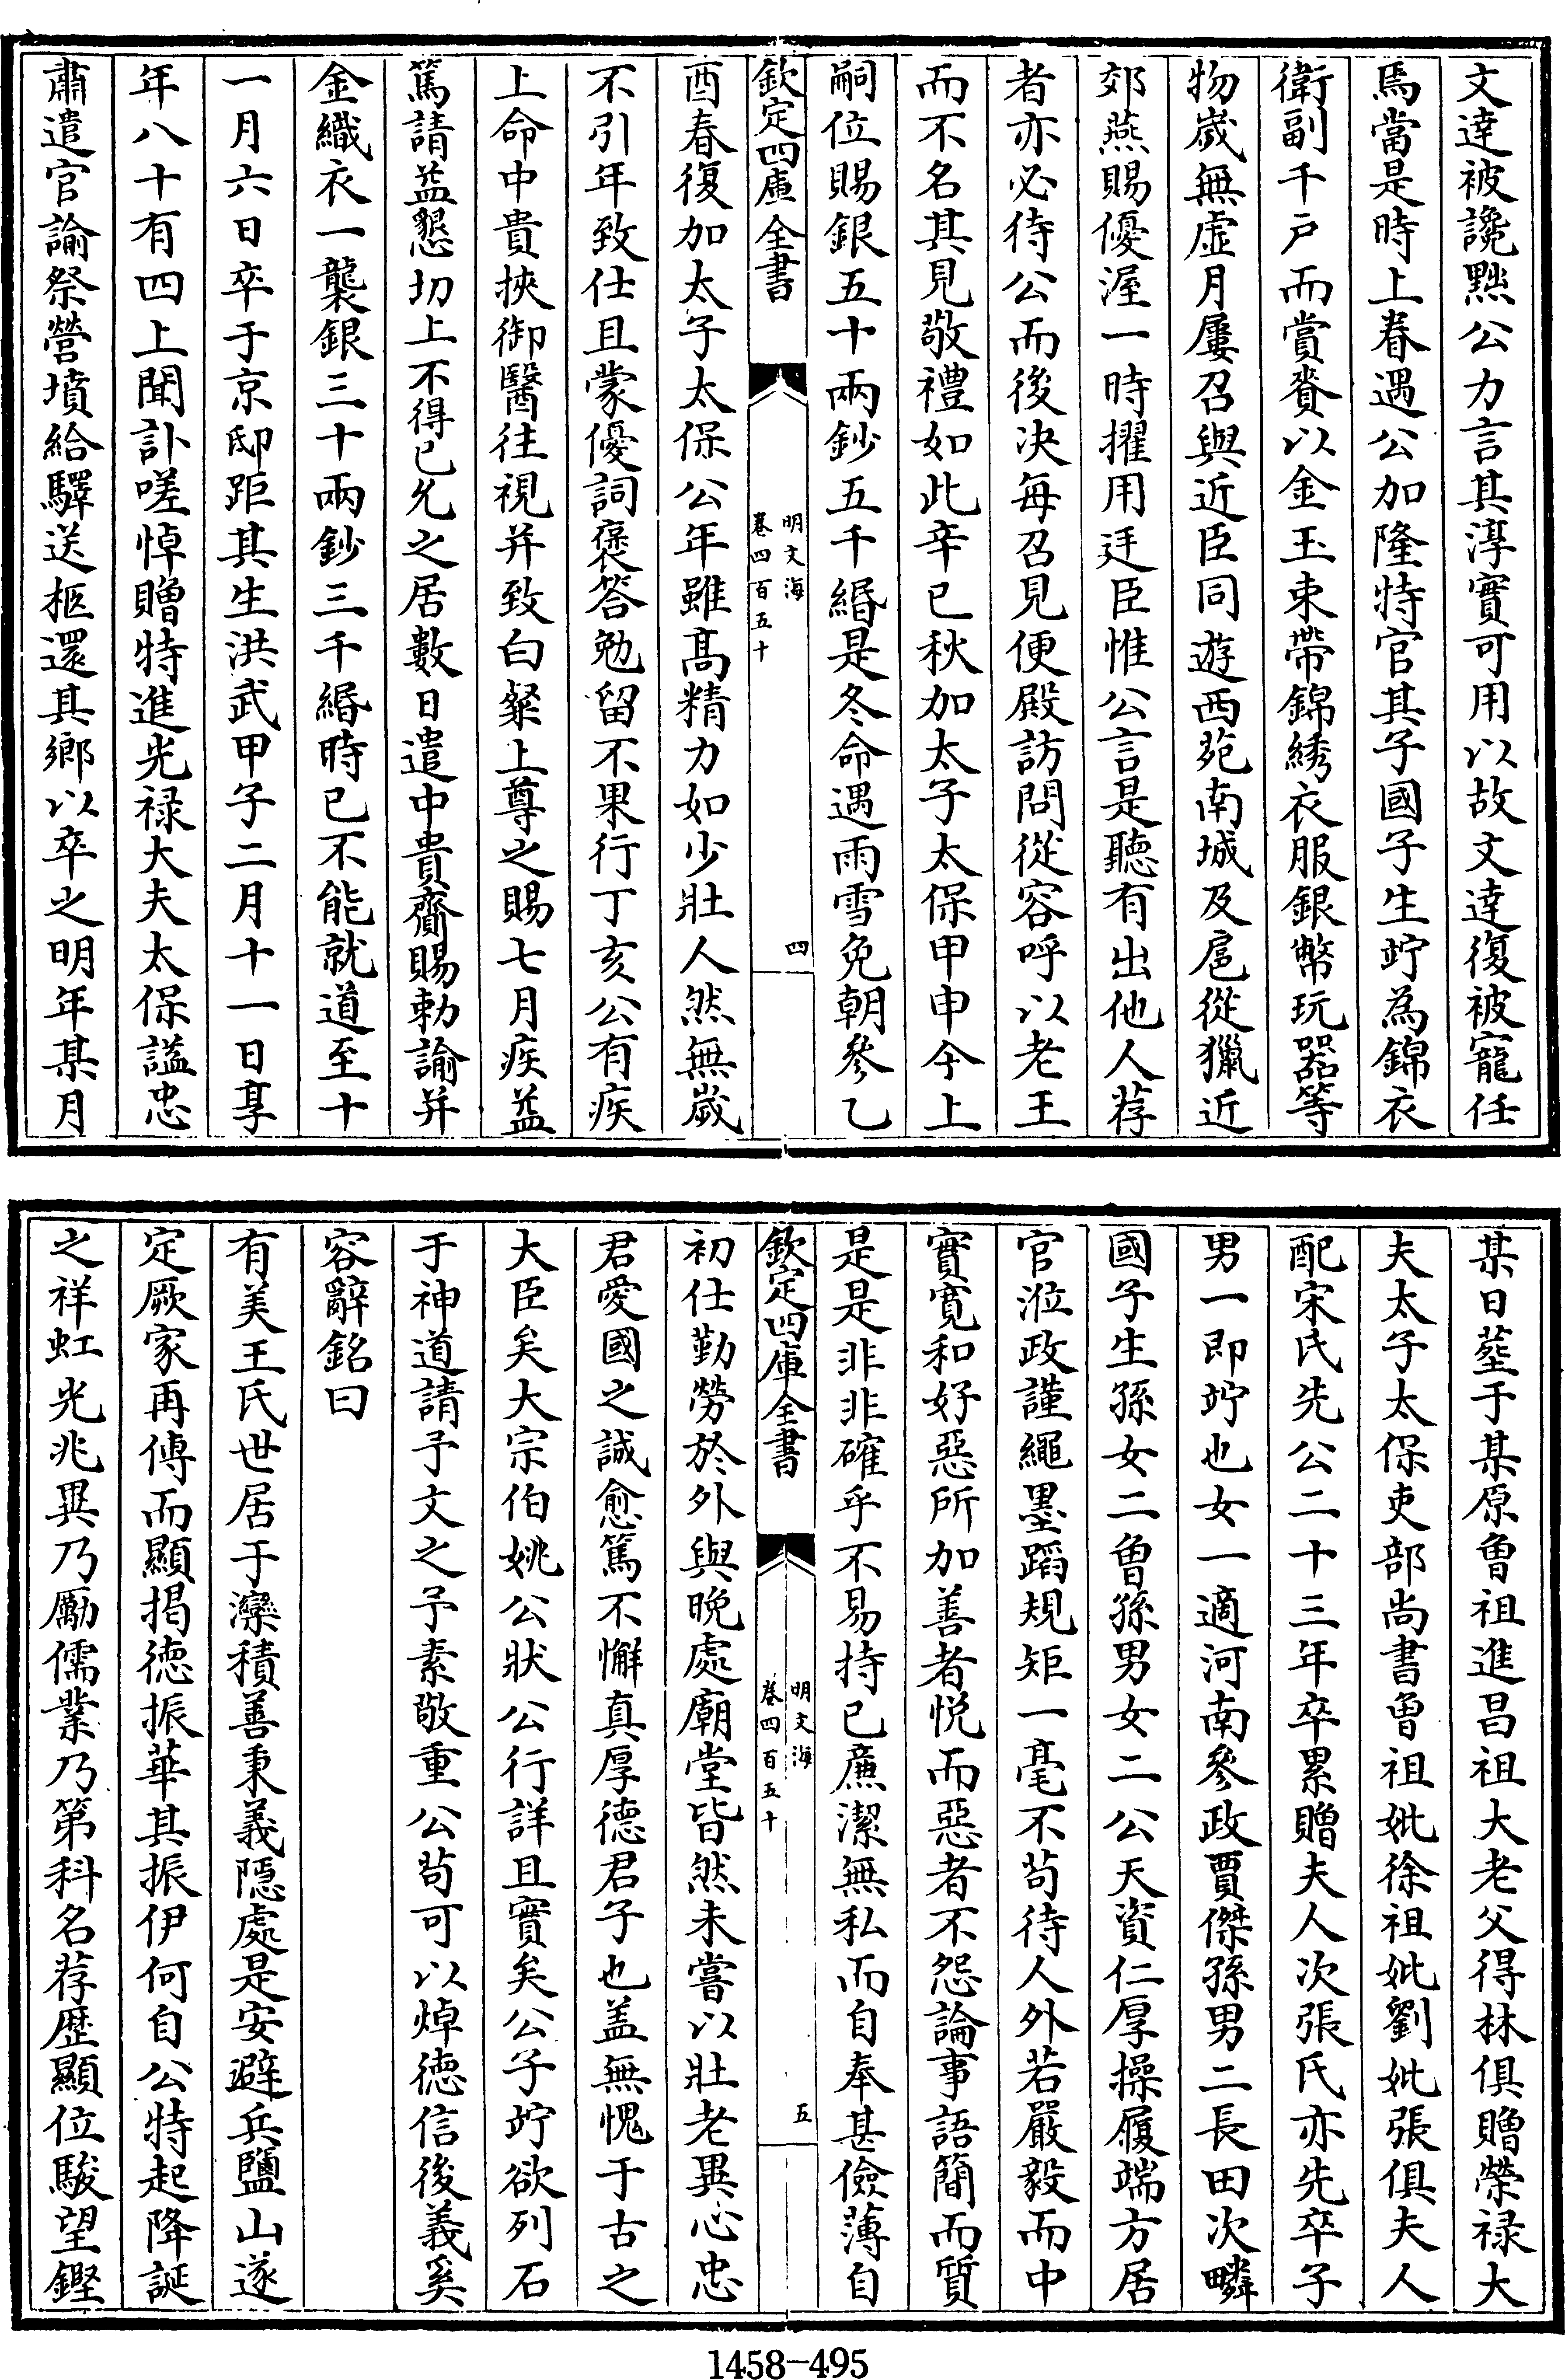 文逹被讒黙公力言其淳實可用以故文逹復被寵任
焉當是時上眷遇公加隆特官其子國子生竚為錦衣
衛副千戶而賞賚以金玉束帶錦綉衣服銀幣玩器等
物嵗無虛月屢召與近臣同遊西苑南城及扈從獵近
郊燕賜優渥一時擢用廷臣惟公言是聽有出他人荐
者亦必待公而後决每召見便殿訪問從容呼以老王
而不名其見敬禮如此辛巳秋加太子太保甲申今上
嗣位賜銀五十兩鈔五千緡是冬命遇雨雪免朝參乙
欽定四庫全書
明文海
卷四百五十
四
酉春復加太子太保公年雖髙精力如少壯人然無嵗
不引年致仕且蒙優詞褒答勉留不果行丁亥公有疾
上命中貴挾御醫往視并致白粲上尊之賜七月疾益
篤請益懇切上不得已允之居數日遣中貴齎賜勅諭并
金織衣一襲銀三十兩鈔三千緡時已不能就道至十
一月六日卒于京邸距其生洪武甲子二月十一日享
年八十有四上聞訃嗟悼贈特進光禄大夫太保諡忠
肅遣官諭祭營墳給驛送柩還其鄉以卒之明年某月
某日塟于某原曽祖進昌祖大老父得林俱贈榮禄大
夫太子太保吏部尚書曽祖妣徐祖妣劉妣張俱夫人
配宋氏先公二十三年卒累贈夫人次張氏亦先卒子
男一即竚也女一適河南參政賈傑孫男二長田次疄
國子生孫女二曽孫男女二公天資仁厚操履端方居
官涖政謹繩墨蹈規矩一毫不苟待人外若嚴毅而中
實寛和好惡所加善者悦而惡者不怨論事語簡而質
是是非非確乎不易持已亷潔無私而自奉甚儉薄自
欽定四庫全書
明文海
卷四百五十
五
初仕勤勞於外與晩處廟堂皆然未嘗以壯老異心忠
君愛國之誠愈篤不懈真厚德君子也盖無愧于古之
大臣矣大宗伯姚公狀公行詳且實矣公子竚欲列石
于神道請予文之予素敬重公苟可以焯徳信後義奚
容辭銘曰
有美王氏世居于灤積善秉義隠處是安避兵鹽山遂
定厥家再傳而顯揭徳振華其振伊何自公特起降誕
之祥虹光兆異乃勵儒業乃第科名荐歴顯位駿望鏗
1458-495